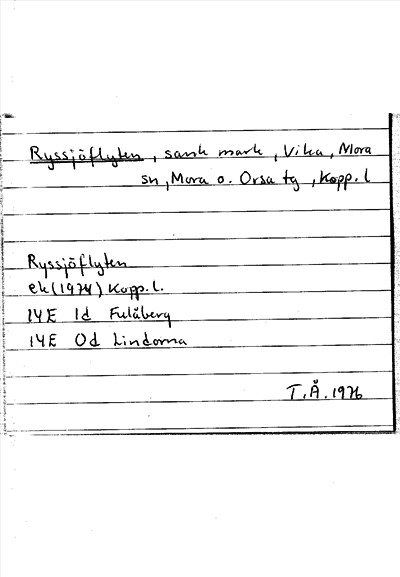 Ryssjöflyten, sank mark, Vika, Mora
sn, Mora o. Orsa tg, Kopp. l
Ryssjöflyten
ek (1974) Kopp. l.
14E 1d Fulåberg
14E 0d Lindorna
T.Å. 1976